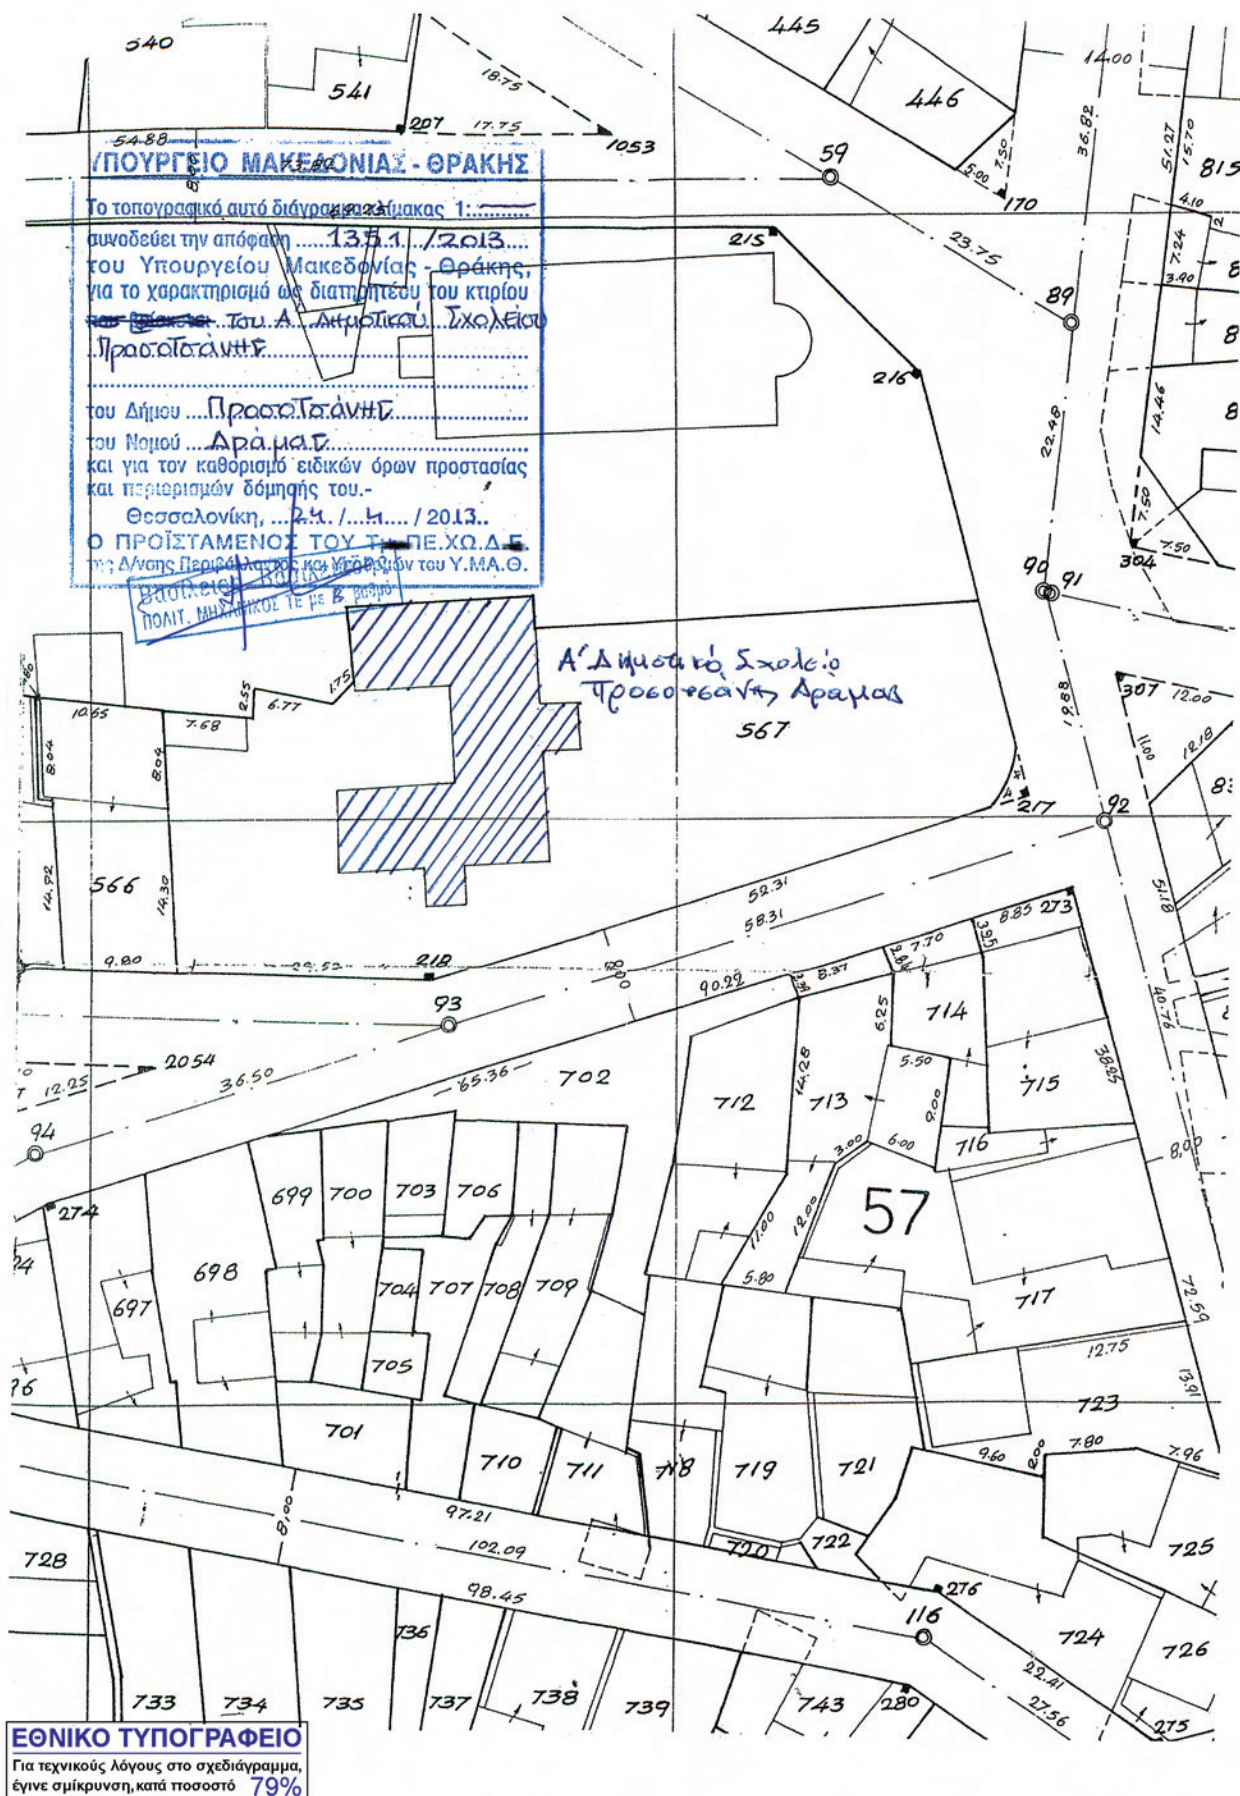 540
541
445
446
14.00
18.75
207
17.75
1053
54.88
73.82
8,00
59
5.00
7.50
170
36.82
51.27
15.70
815
4.10
7.24
3.90
ΥΠΟΥΡΓΕΙΟ ΜΑΚΕΔΟΝΙΑΣ - ΘΡΑΚΗΣ
Το τοπογραφικό αυτό διάγραμμα κλίμακας 1:
συνοδεύει την απόφαση 1351 /2013
του Υπουργείου Μακεδονίας - Θράκης,
για το χαρακτηρισμό ως διατηρητέου του κτιρίου
του Α Δημοτικού Σχολείου
Προσοτσάνης
του Δήμου Προσοτσάνης
του Νομού Δράμας
και για τον καθορισμό ειδικών όρων προστασίας
και περιορισμών δόμησής του.-
Θεσσαλονίκη, 24 / 4 / 2013
Ο ΠΡΟΪΣΤΑΜΕΝΟΣ ΤΟΥ ΤΜ ΠΕ.ΧΩ.Δ.Ε.
της Δ/νσης Περιβάλλοντος και Υποδομών του Υ.ΜΑ.Θ.
ΠΟΛΙΤ. ΜΗΧΑΝΙΚΟΣ ΤΕ με Β βαθμό
215
23.75
89
216
22.48
14.46
7.50
7.50
304
90 91
Α' Δημοτικό Σχολείο
Προσοτσάνης Δράμας
567
307
12.00
19.88
11.00
12.18
217
92
10.65
7.68
2.55
6.77
1.75
8.04
8.04
566
14.92
14.30
9.80
29.52
218
52.31
58.31
8.00
51.18
93
90.22
8.37
7.70
8.85
273
3.95
2054
12.25
36.50
65.36
702
94
6.25
714
5.50
14.28
712
713
9.00
715
38.25
40.76
716
3.00
6.00
8,00
274
699
700
703
706
57
12.00
11.00
5.80
698
697
704
707
708
709
705
717
72.59
12.75
13.91
723
701
710
711
718
719
721
9.60
2.00
7.80
7.96
97.21
102.09
98.45
8,00
720
722
725
728
276
116
724
726
22.41
27.56
733
734
735
736
737
738
739
743
280
275
ΕΘΝΙΚΟ ΤΥΠΟΓΡΑΦΕΙΟ
Για τεχνικούς λόγους στο σχεδιάγραμμα,
έγινε σμίκρυνση, κατά ποσοστό 79%